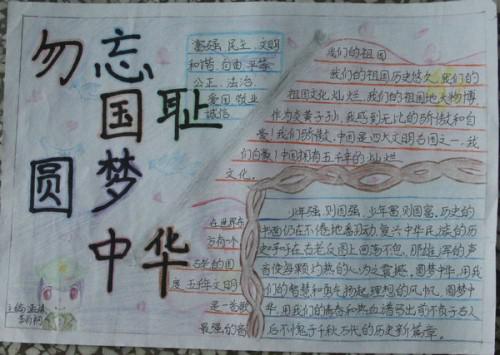 勿忘
国耻
圆梦
中华
富强 民主 文明
和谐 自由 平等
公正 法治
爱国 敬业
诚信
我们的祖国
我们的祖国历史悠久,我们的
祖国文化灿烂,我们的祖国地大物博
作为炎黄子孙,我感到无比的骄傲和自
豪!我们骄傲,中国是四大文明古国之一,我
们自豪!中国拥有五千年的灿烂
文化。
在世界东
方有一个
古老的国
度 五千年文明
是一首歌
最强的音
少年强,则国强,少年富,则国富,历史的
书页仍在不倦地翻动,复兴中华民族的历
史
那雄浑的声
音使每颗灼热的心为之震撼,圆梦中华,用我
们的智慧和勇气扬起理想的风帆,圆梦中
华,用我们的青春和热血谱写出前不负古人
后不愧于千秋万代的历史新篇章。